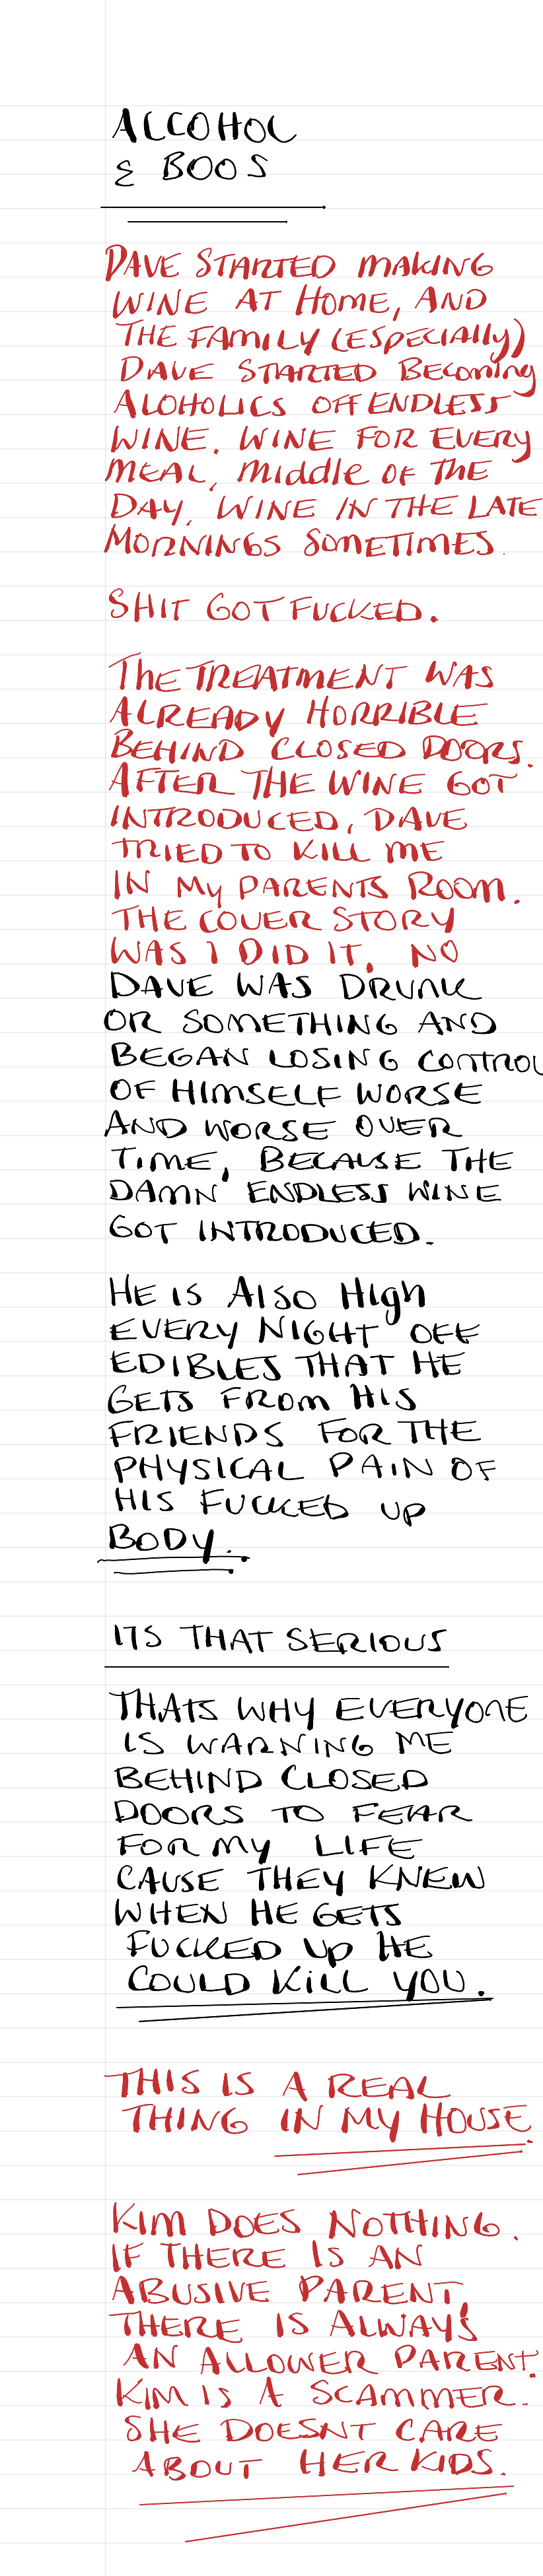 ALCOHOL
& BOOS
DAVE STARTED MAKING
WINE AT HOME, AND
THE FAMILY (ESPECIALLY)
DAVE STARTED BECOMING
ALOHOLICS OFF ENDLESS
WINE. WINE FOR EVERY
MEAL, MIDDLE OF THE
DAY, WINE IN THE LATE
MORNINGS SOMETIMES.
SHIT GOT FUCKED.
THE TREATMENT WAS
ALREADY HORRIBLE
BEHIND CLOSED DOORS.
AFTER THE WINE GOT
INTRODUCED, DAVE
TRIED TO KILL ME
IN MY PARENTS ROOM.
THE COVER STORY
WAS I DID IT. NO
DAVE WAS DRUNK
OR SOMETHING AND
BEGAN LOSING CONTROL
OF HIMSELF WORSE
AND WORSE OVER
TIME, BECAUSE THE
DAMN ENDLESS WINE
GOT INTRODUCED.
HE IS ALSO HIGH
EVERY NIGHT OFF
EDIBLES THAT HE
GETS FROM HIS
FRIENDS FOR THE
PHYSICAL PAIN OF
HIS FUCKED UP
BODY.
ITS THAT SERIOUS
THATS WHY EVERYONE
IS WARNING ME
BEHIND CLOSED
DOORS TO FEAR
FOR MY LIFE
CAUSE THEY KNEW
WHEN HE GETS
FUCKED UP HE
COULD KILL YOU.
THIS IS A REAL
THING IN MY HOUSE.
KIM DOES NOTHING.
IF THERE IS AN
ABUSIVE PARENT,
THERE IS ALWAYS
AN ALLOWER PARENT.
KIM IS A SCAMMER.
SHE DOESNT CARE
ABOUT HER KIDS.